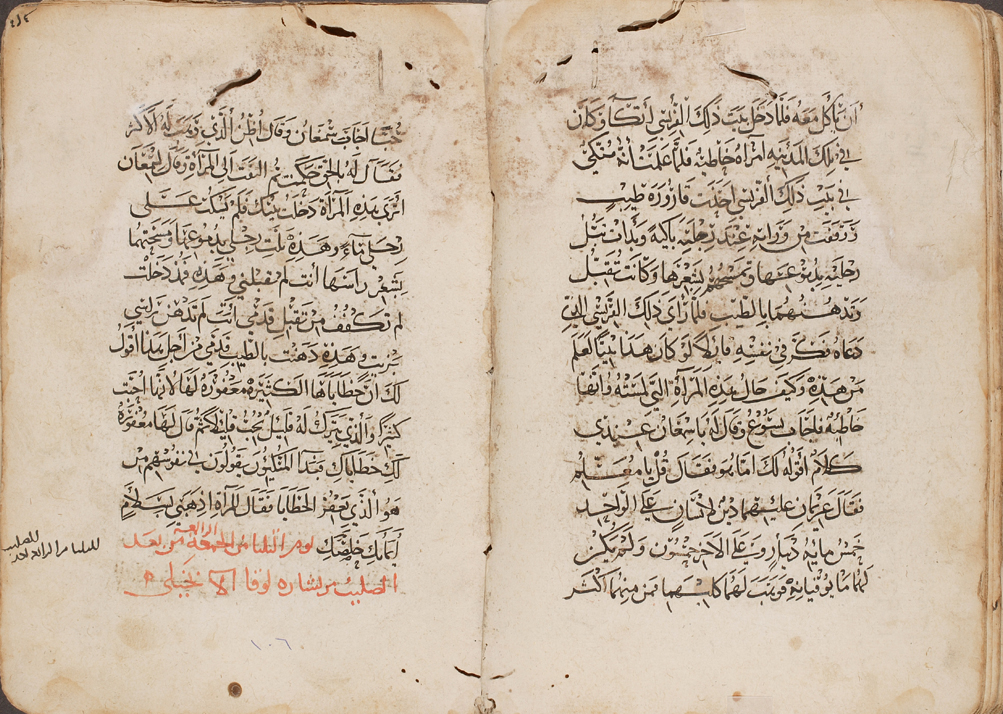 أن يأكل معه فلما دخل بيت ذلك الفريسي أتكا وكان
في تلك المدنيه امرأه خاطيه فلما علمت أنه متكي
في بيت ذلك الفريسي اخذت قارورة طيب
ووقفت من ورايه عند رجليه باكية وبدأت تبل
رجليه بدموعها وتمسحهم بشعرها وكانت تقبل
وتدهنهما بالطيب فلما راى ذلك الفريسي الذي
دعاه فكر في نفسه قايلا لو كان هذا نبيا لعلم
من هذه وكيف حال هذه المرأة التي لمسته وانها
خاطيه فاجاب يسوع وقال له يا سمعان عندي
كلام اقوله لك اما هو فقال قل يا معلم
فقال غريمان عليهما دين لانسان على الواحد
خمس مايه دينار وعلى الاخر خمسون ولم يكن
لهما ما يوفيانه فوهب لهما كليهما فمن منهما اكثر
حبا اجاب شمعان وقال اظن ألذي وهب له الاكثر
فقال له بالحق حكمت ثم التفت الى المرأة وقال لشمعان
اترى هذه المرأة دخلت بيتك فلم تسكب على
رجلي ماء وهذه بلت رجلي بدموعها ومسحتهما
بشعر راسها انت لم تقبلني وهذه منذ دخلت
لم تكفف من تقبيل قدمي انت لم تدهن راسي
بزيت وهذه دهنت بالطيب قدمي من اجل هذا اقول
لك ان خطاياها الكثيره مغفوره لها لانها احبت
كثيرا والذي يترك له قليل يحب قليلا ثم قال لها مغفوره
لك خطاياك فبدا المتكيون يقولون في نفوسهم من
هو ألذي يغفر الخطايا فقال للمرأة اذهبي بسلام
ايمانك خلصك يوم الثلثا من الجمعه الرابعه من بعد
الصليب من بشاره لوقا الانجيلي
للصليب
للثلثا من الرابع احد
١٠٦